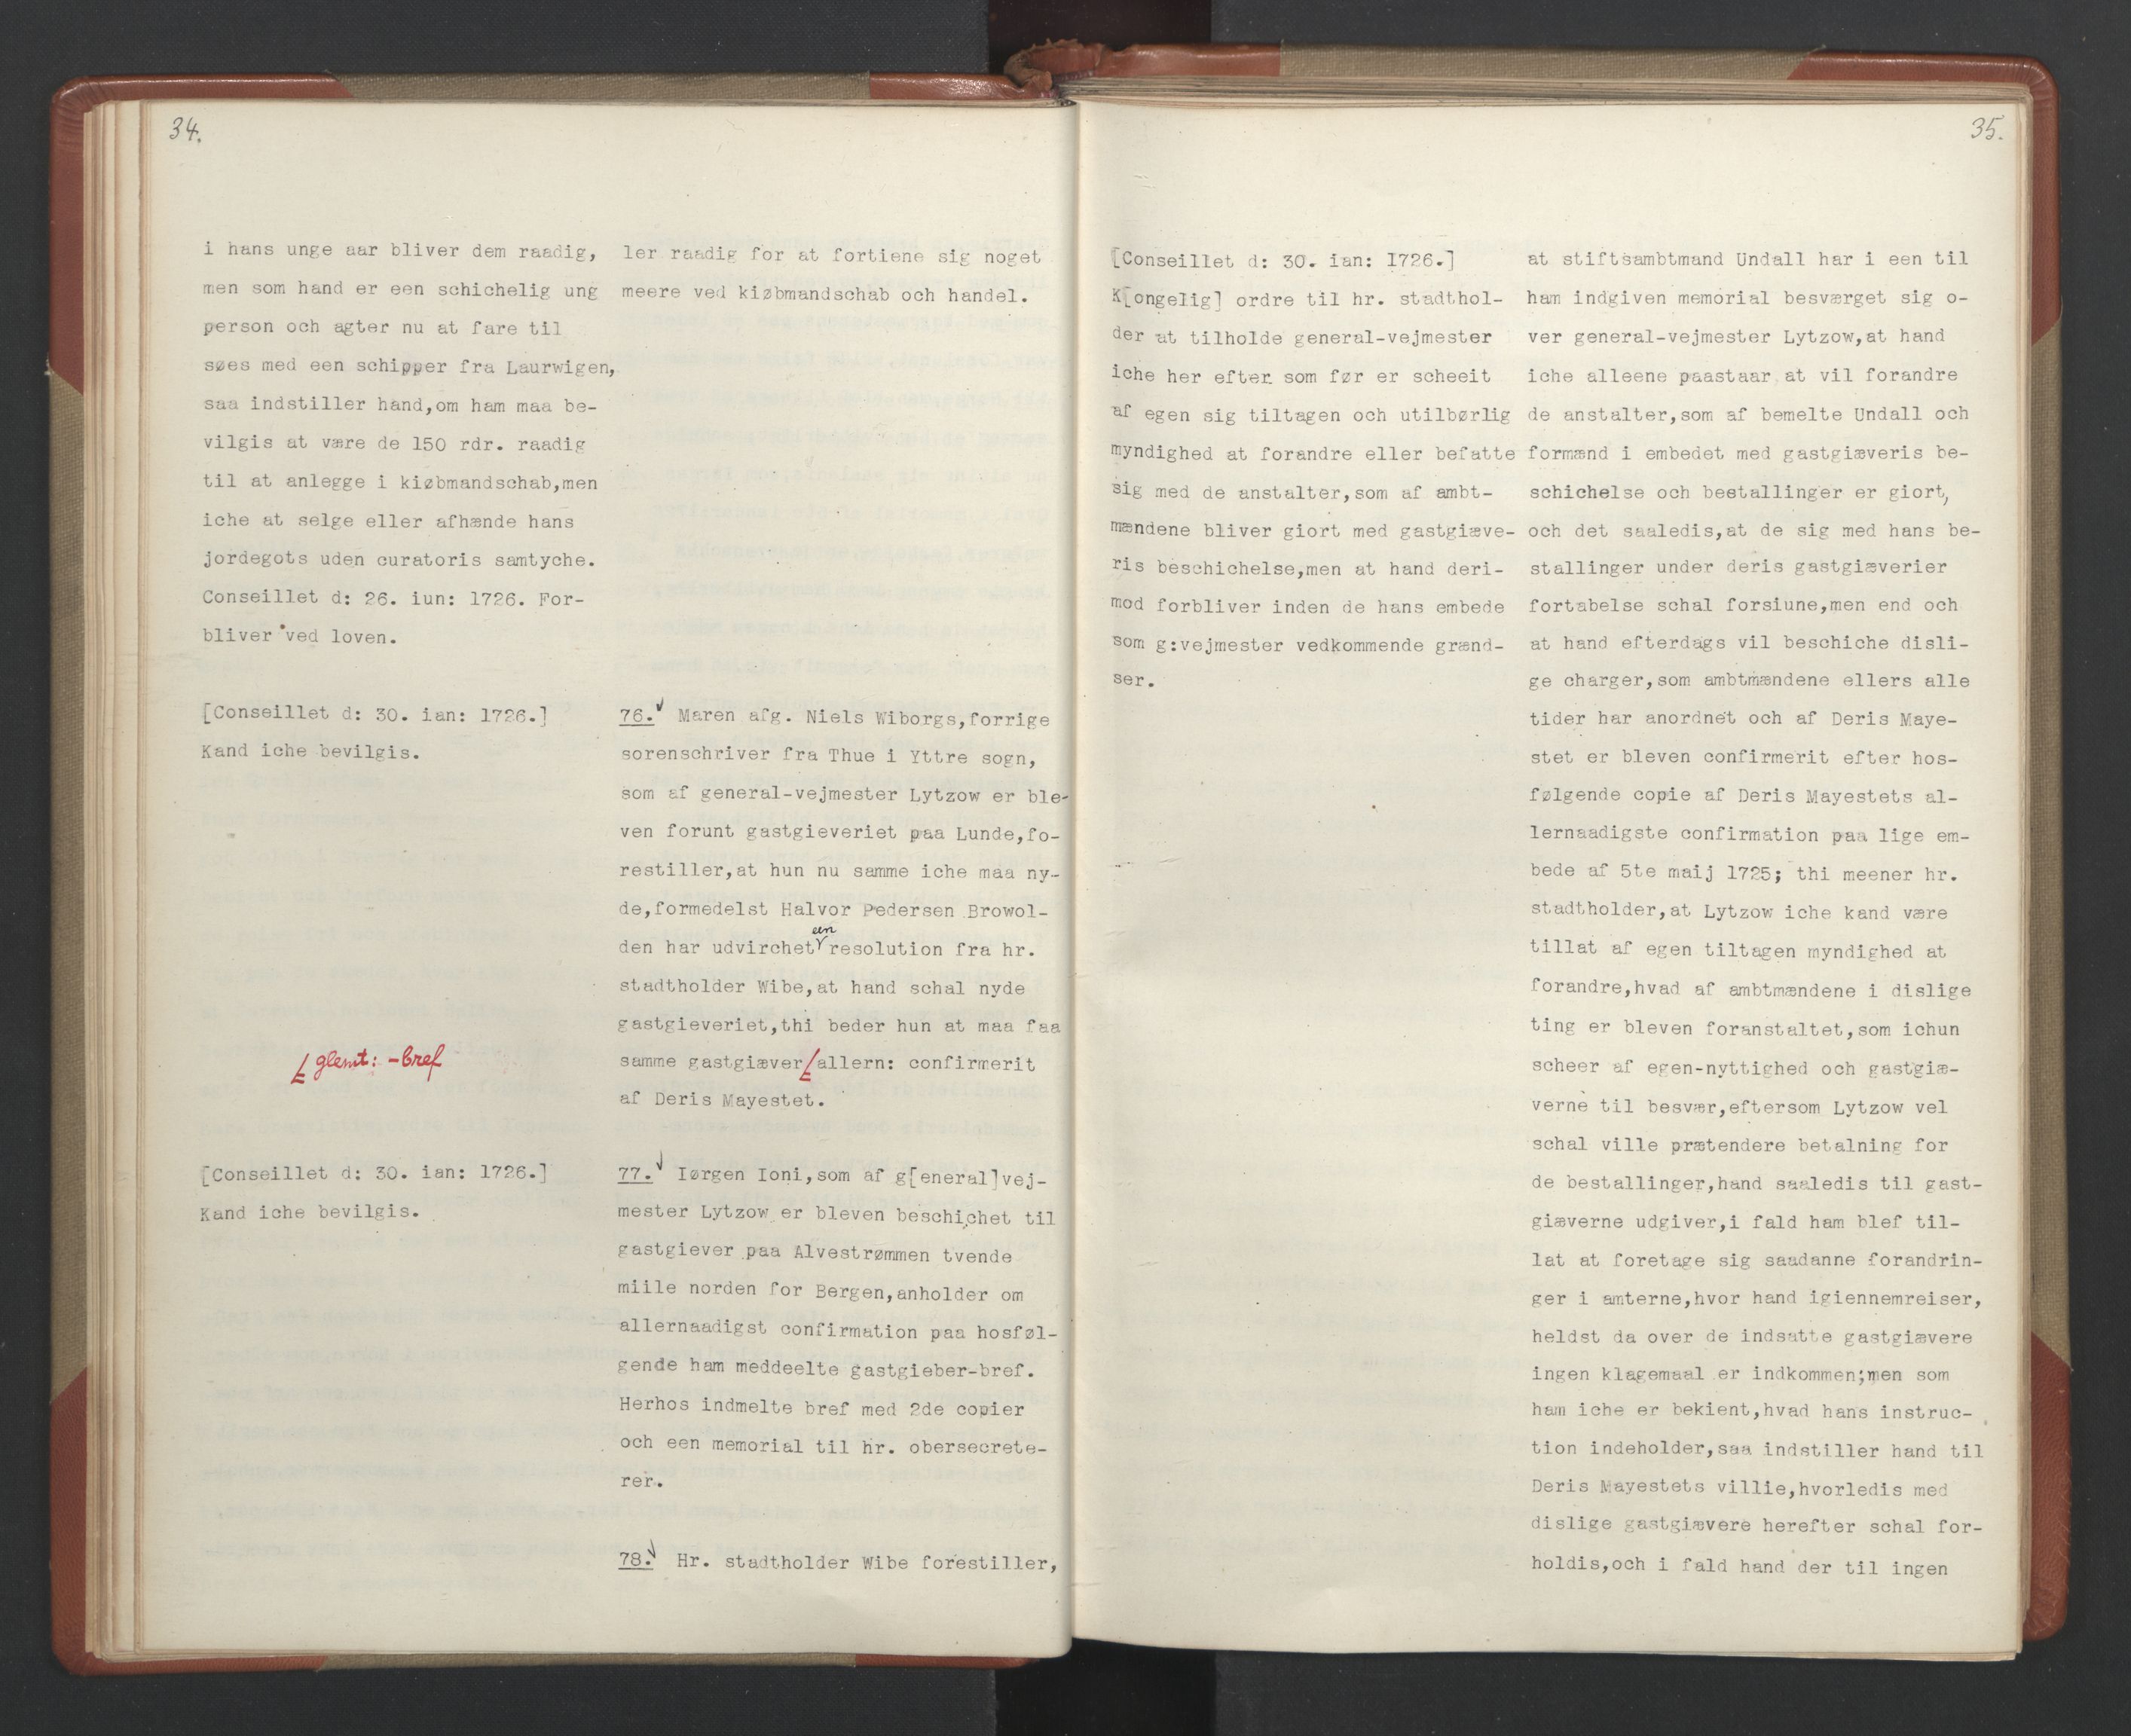 34.
i hans unge aar bliver dem raadig,
men som hand er een schichelig ung
person och agter nu at fare til
søes med een schipper fra Laurwigen,
saa indstiller hand,om ham maa be-
vilgis at være de 150 rdr. raadig
til at anlegge i kiøbmandschab,men
iche at selge eller afhænde hans
jordegots uden curatoris samtyche.
Conseillet d: 26. iun: 1726. For-
bliver ved loven.
[Conseillet d: 30. ian: 1726.]
Kand iche bevilgis.
glemt: -bref
[Conseillet d: 30. ian: 1726.]
Kand iche bevilgis.
ler raadig for at fortiene sig noget
meere ved kiøbmandschab och handel.
76. Maren afg. Niels Wiborgs,forrige
sorenschriver fra Thue i Yttre sogn,
som af general-vejmester Lytzow er ble-
ven forunt gastgieveriet paa Lunde,fo-
restiller,at hun nu samme iche maa ny-
de,formedelst Halvor Pedersen Browol-
een
den har udvirchet resolution fra hr.
stadtholder Wibe,at hand schal nyde
gastgieveriet,thi beder hun at maa faa
samme gastgiæver allern: confirmerit
af Deris Mayestet.
77. Iørgen Ioni,som af g[eneral]vej-
mester Lytzow er bleven beschichet til
gastgiever paa Alvestrømmen tvende
miile norden for Bergen,anholder om
allernaadigst confirmation paa hosføl-
gende ham meddeelte gastgieber-bref.
Herhos indmelte bref med 2de copier
och een memorial til hr. obersecrete-
rer.
78. Hr. stadtholder Wibe forestiller,
35.
[Conseillet d: 30. ian: 1726.]
K[ongelig] ordre til hr. stadthol-
der at tilholde general-vejmester
iche her efter som før er scheeit
af egen sig tiltagen och utilbørlig
myndighed at forandre eller befatte
sig med de anstalter,som af ambt-
mændene bliver giort med gastgiæve-
ris beschichelse,men at hand deri-
mod forbliver inden de hans embede
som g:vejmester vedkommende grænd-
ser.
at stiftsambtmand Undall har i een til
ham indgiven memorial besværget sig o-
ver general-vejmester Lytzow,at hand
iche alleene paastaar at vil forandre
de anstalter,som af bemelte Undall och
formænd i embedet med gastgiæveris be-
schichelse och bestallinger er giort,
och det saaledis,at de sig med hans be-
stallinger under deris gastgiæverier
fortabelse schal forsiune,men end och
at hand efterdags vil beschiche disli-
ge charger,som ambtmændene ellers alle
tider har anordnet och af Deris Maye-
stet er bleven confirmerit efter hos-
følgende copie af Deris Mayestets al-
lernaadigste confirmation paa lige em-
bede af 5te maij 1725; thi meener hr.
stadtholder,at Lytzow iche kand være
tillat af egen tiltagen myndighed at
forandre,hvad af ambtmændene i dislige
ting er bleven foranstaltet,som ichun
scheer af egen-nyttighed och gastgiæ-
verne til besvær,eftersom Lytzow vel
schal ville prætendere betalning for
de bestallinger,hand saaledis til gast-
giæverne udgiver,i fald ham blef til-
lat at foretage sig saadanne forandrin-
ger i amterne,hvor hand igiennemreiser,
heldst da over de indsatte gastgiævere
ingen klagemaal er indkommen;men som
ham iche er bekient,hvad hans instruc-
tion indeholder,saa indstiller hand til
Deris Mayestets villie,hvorledis med
dislige gastgiævere herefter schal for-
holdis,och i fald hand der til ingen